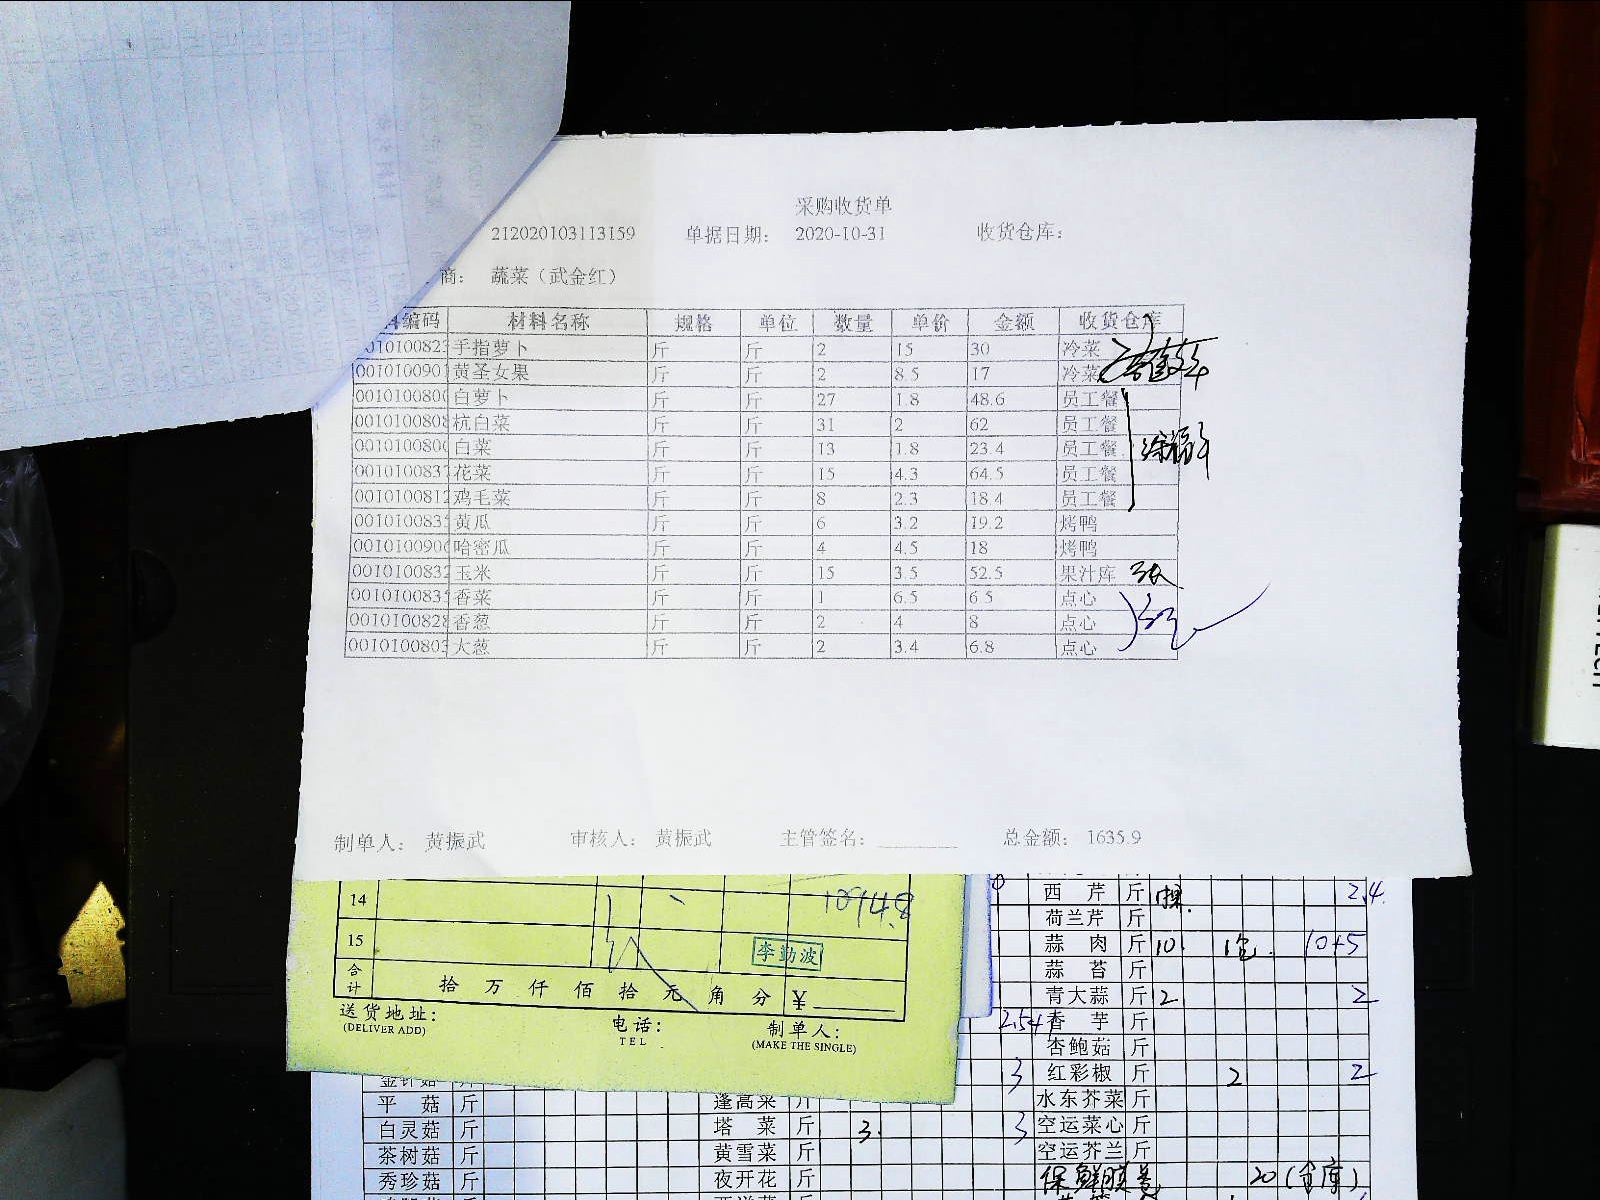 采购收货单
212020103113159 单据日期： 2020-10-31 收货仓库：
商： 蔬菜（武金红）
编码 材料名称 规格 单位 数量 单价 金额 收货仓库
手指萝卜 斤 斤 2 15 30 冷菜
001010090 黄圣女果 斤 斤 2 8.5 17 冷菜
001010080 白萝卜 斤 斤 27 1.8 48.6 员工餐
001010080 杭白菜 斤 斤 31 2 62 员工餐
001010080 白菜 斤 斤 13 1.8 23.4 员工餐
001010083 花菜 斤 斤 15 4.3 64.5 员工餐
001010081 鸡毛菜 斤 斤 8 2.3 18.4 员工餐
001010083 黄瓜 斤 斤 6 3.2 19.2 烤鸭
001010090 哈密瓜 斤 斤 4 4.5 18 烤鸭
001010083 玉米 斤 斤 15 3.5 52.5 果汁库
001010083 香菜 斤 斤 1 6.5 6.5 点心
001010082 香葱 斤 斤 2 4 8 点心
001010080 大葱 斤 斤 2 3.4 6.8 点心
制单人： 黄振武 审核人： 黄振武 主管签名： 总金额： 1635.9
14 1094.8
15 李勤波
合计 拾 万 仟 佰 拾 元 角 分 ￥
送货地址： 电话： 制单人：
(DELIVER ADD) TEL (MAKE THE SINGLE)
西芹 斤 2.4
荷兰芹 斤
蒜肉 斤 10 1包 10+5
蒜苔 斤
青大蒜 斤 2 2
香芋 斤
杏鲍菇 斤
3 红彩椒 斤 2 2
平菇 斤 蓬蒿菜 斤 水东芥菜 斤
白灵菇 斤 塔菜 斤 3 3 空运菜心 斤
茶树菇 斤 黄雪菜 斤 空运芥兰 斤
秀珍菇 斤 夜开花 斤 保鲜膜 20(仓库)